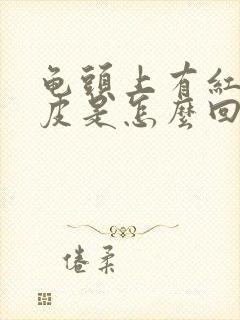 龟頭上有紅
皮是怎麼回
倦柔